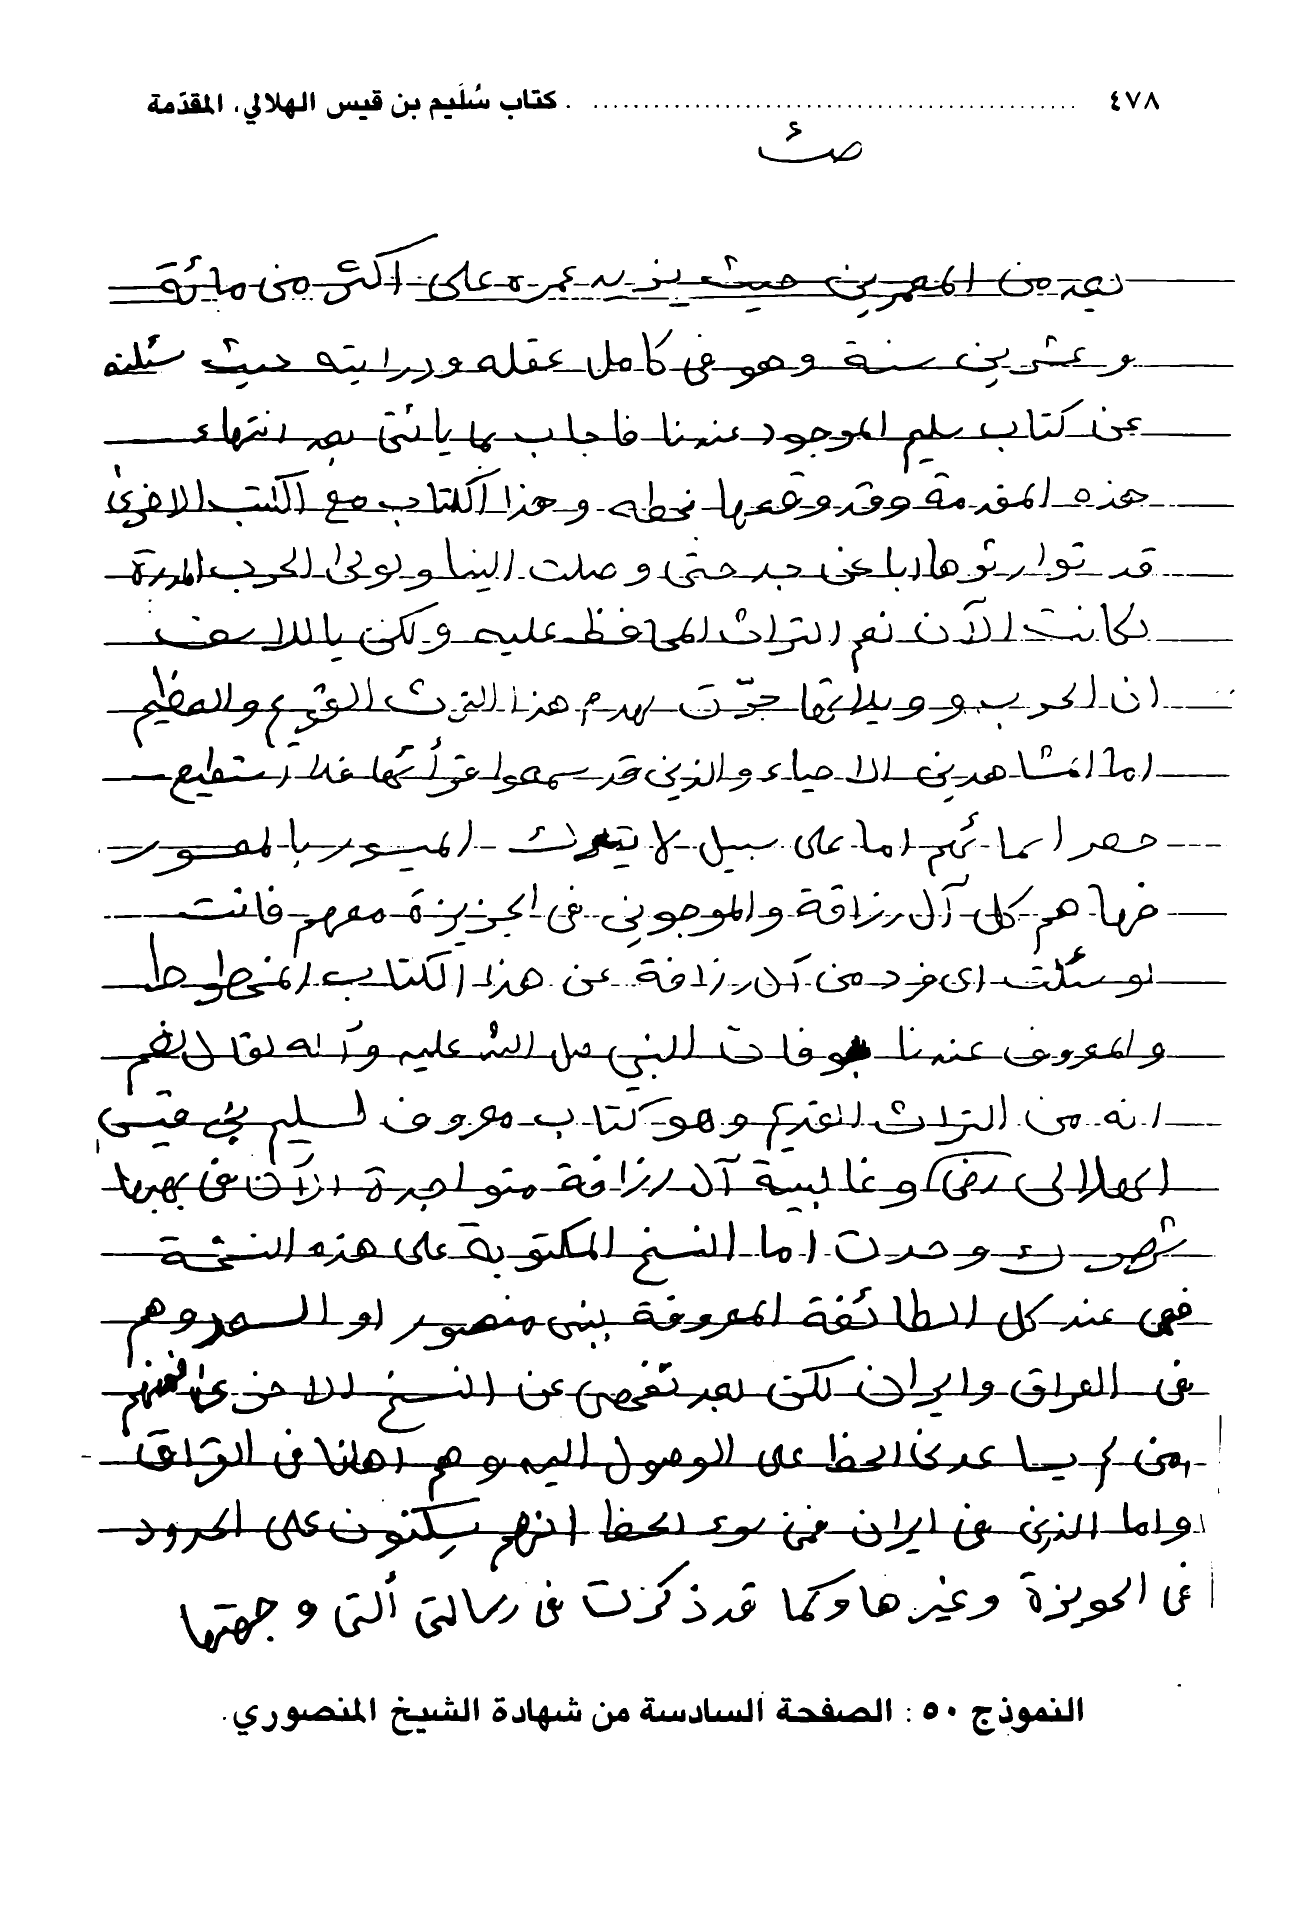 ٤٧٨ ........ كتاب سُلَيم بن قيس الهلالي، المقدّمة
يعد من المعمرين حيث يزيد عمره على اكثر من مائة
وعشرين سنة وهو في كامل عقله ودرايته حيث سئلته
عن كتاب سليم الموجود عندنا فاجاب بما يأتي بعد انتهاء
هذه المقدمة وقد وقعها بخطه وهذا الكتاب مع الكتب الاخرى
قد توارثوها ابا عن جد حتى وصلت الينا ولولى الحرب المدمرة
لكانت الآن نعم التراث المحافظ عليه ولكن ياللاسف
ان الحرب وويلاتها جرّت بهدم هذا التراث القيم والعظيم
اما المشاهدين الاحياء والذين قد سمعوا قرأتها فلا استطيع
حصر اسمائهم اما على سبيل لا يترك الميسور بالمعسور
فها هم كل آل رزاقة والموجوين في الجزيرة معهم فانت
لو سئلت اى فرد من آل رزاقة عن هذا الكتاب المخطوط
والمعروف عندنا بوفات النبي صلى الله عليه وآله لقال نعم
انه من التراث القديم وهو كتاب معروف لسليم بن قيس
الهلالي رض وغالبية آل رزاقة متواجدة الآن في
وحدت اما النسخ المكتوبة على هذه النسخة
فهي عند كل الطائفة المعروفة ببني منصور او وهم
في العراق وايران لكن بعد تفحصي عن النسخ الاخرى
من لم يساعدني الحظ على الوصول اليه وهم اهلنا في العراق
واما الذين في ايران فمن سوء الحظ انهم يسكنون على الحدود
في الحويزة وغيرها وكما قد ذكرت في رسالتي ألتي وجهتها
النموذج ٥٠ : الصفحة السادسة من شهادة الشيخ المنصوري.